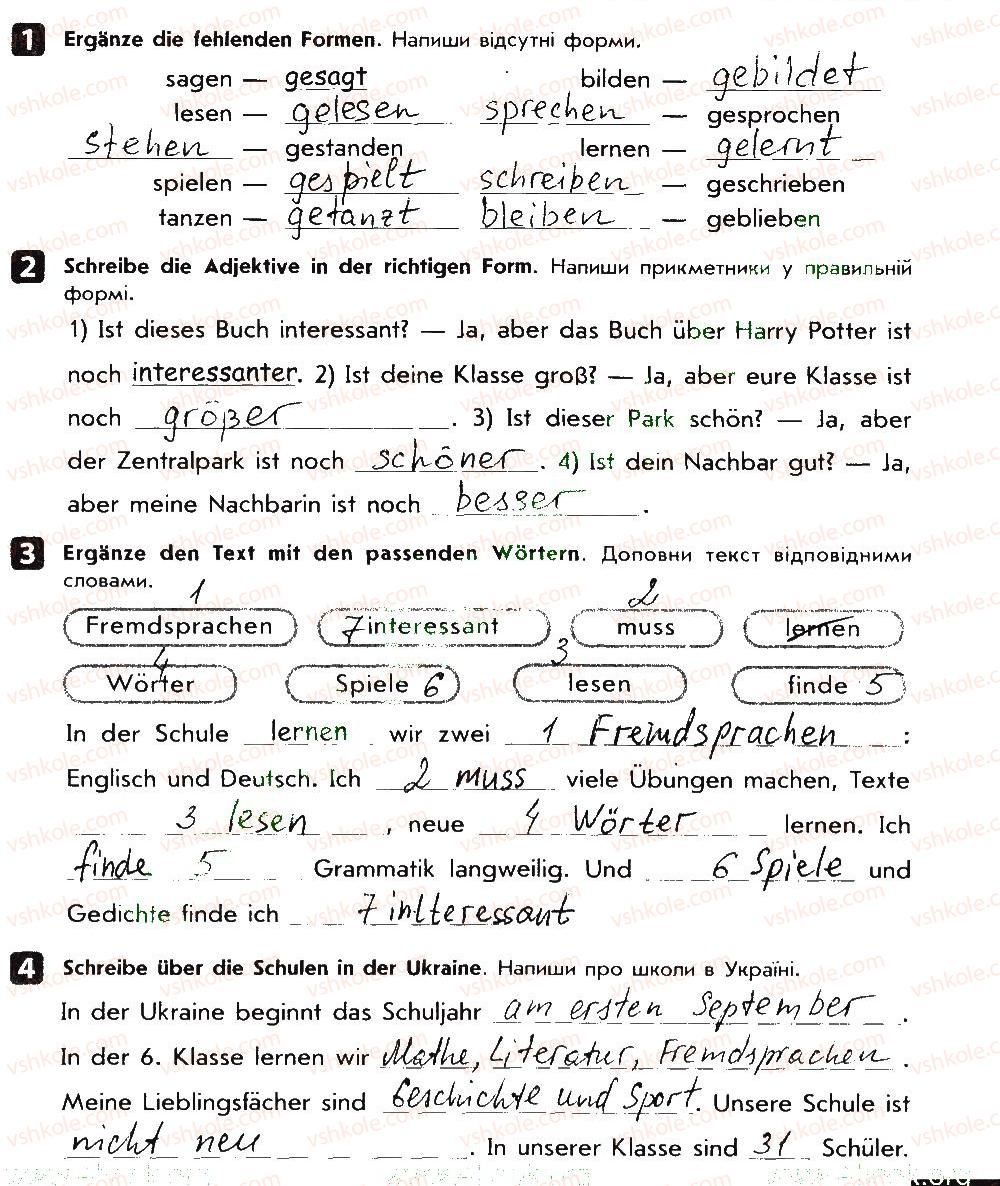 1 Ergänze die fehlenden Formen. Напиши відсутні форми.
sagen — gesagt bilden — gebildet
lesen — gelesen sprechen — gesprochen
stehen — gestanden lernen — gelernt
spielen — gespielt schreiben — geschrieben
tanzen — getanzt bleiben — geblieben
2 Schreibe die Adjektive in der richtigen Form. Напиши прикметники у правильній
формі.
1) Ist dieses Buch interessant? — Ja, aber das Buch über Harry Potter ist
noch interessanter. 2) Ist deine Klasse groß? — Ja, aber eure Klasse ist
noch größer. 3) Ist dieser Park schön? — Ja, aber
der Zentralpark ist noch schöner. 4) Ist dein Nachbar gut? — Ja,
aber meine Nachbarin ist noch besser.
3 Ergänze den Text mit den passenden Wörtern. Доповни текст відповідними
словами.
1 2
Fremdsprachen 7 interessant muss lernen
4 3
Wörter Spiele 6 lesen finde 5
In der Schule lernen wir zwei 1 Fremdsprachen :
Englisch und Deutsch. Ich 2 muss viele Übungen machen, Texte
3 lesen , neue 4 Wörter lernen. Ich
finde 5 Grammatik langweilig. Und 6 Spiele und
Gedichte finde ich 7 intteressant
4 Schreibe über die Schulen in der Ukraine. Напиши про школи в Україні.
In der Ukraine beginnt das Schuljahr am ersten September .
In der 6. Klasse lernen wir Mathe, Literatur, Fremdsprachen .
Meine Lieblingsfächer sind Geschichte und Sport. Unsere Schule ist
nicht neu . In unserer Klasse sind 31 Schüler.